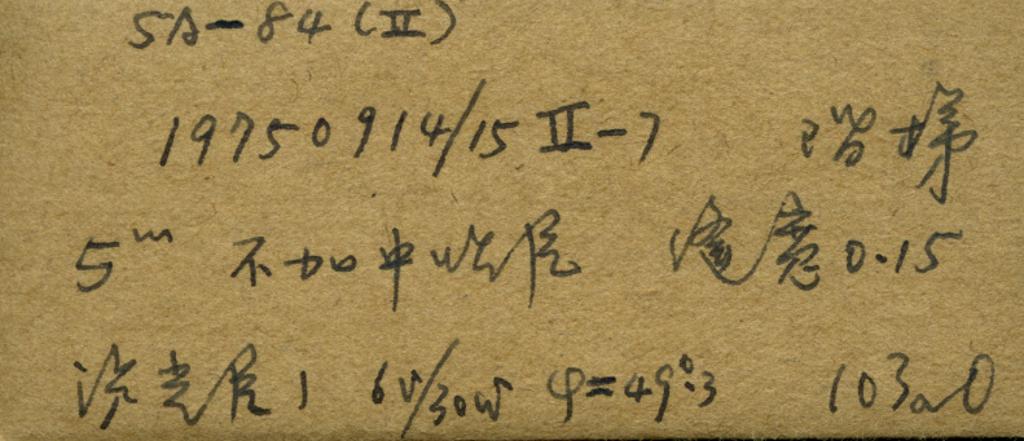 SA-84 (II)
19750914/15 II-7 阶梯
5ᵐ 不加中性片 0.15
滤光片1 6V/30W φ=49°.3 103aO